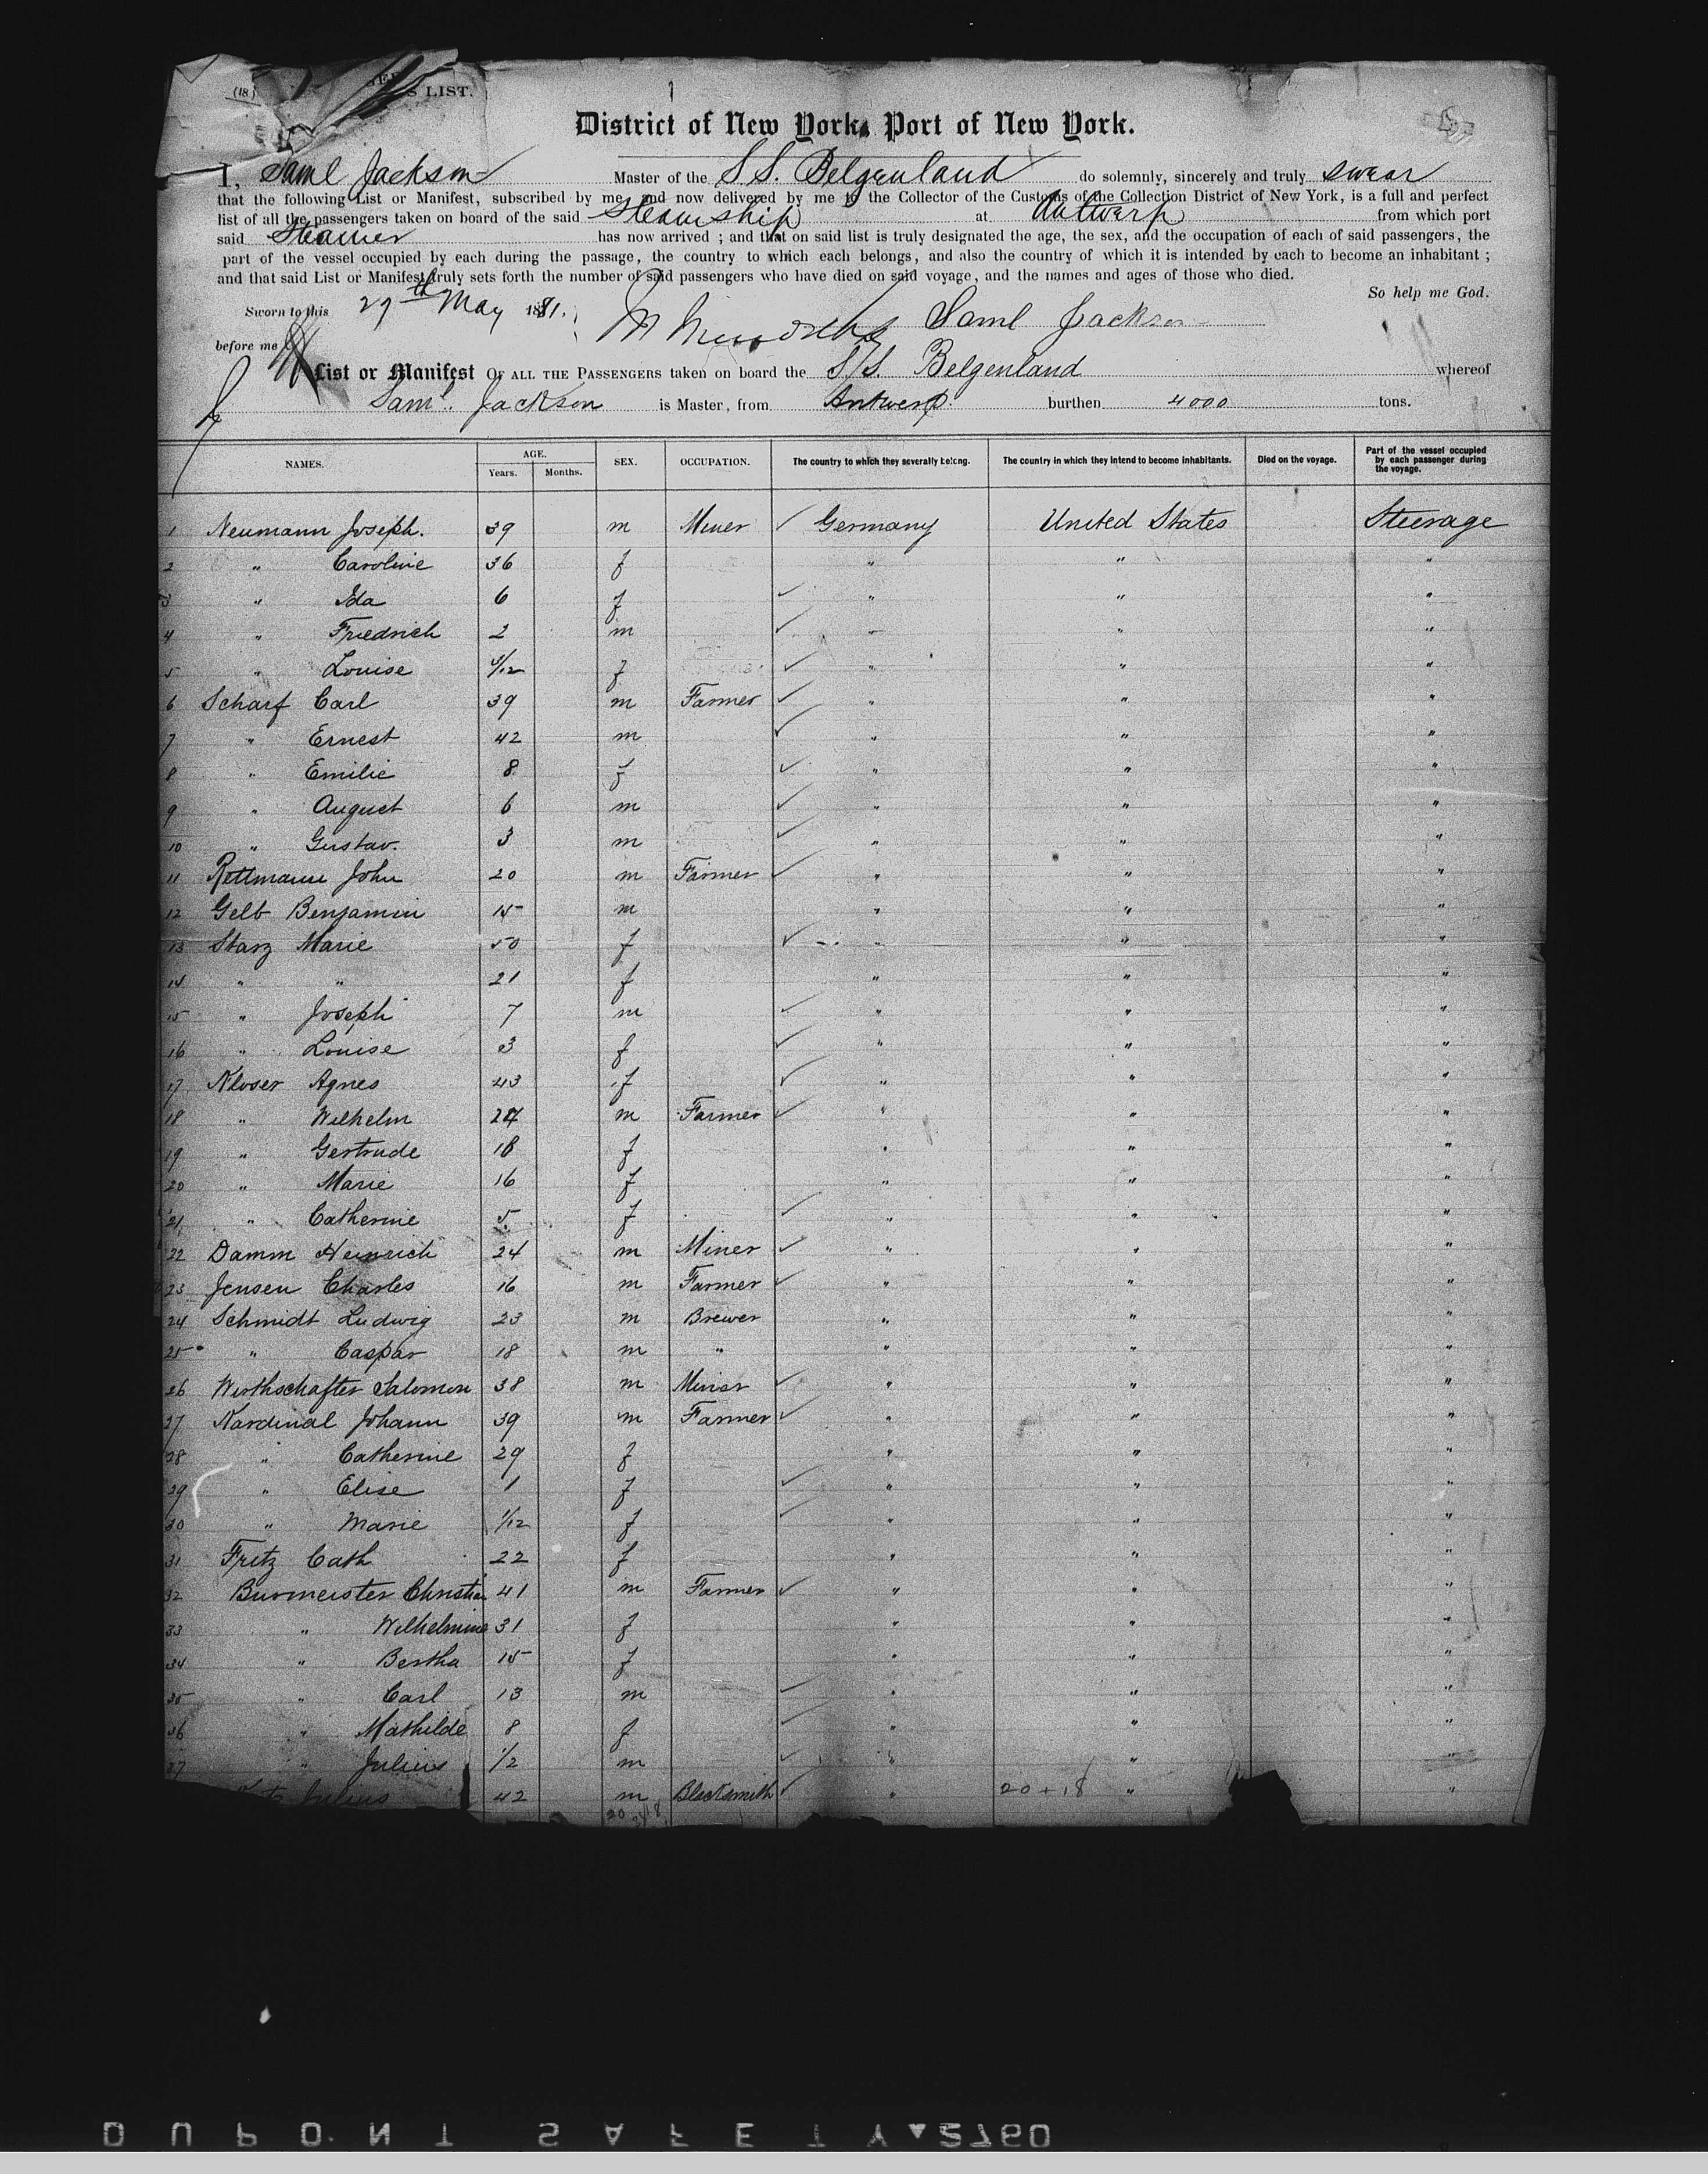 (18)
S LIST.
District of New York, Port of New York.
I, Saml Jackson Master of the S.S. Belgenland do solemnly, sincerely and truly swear
that the following List or Manifest, subscribed by me, and now delivered by me to the Collector of the Customs of the Collection District of New York, is a full and perfect
list of all the passengers taken on board of the said Steamship at Antwerp from which port
said Steamer has now arrived ; and that on said list is truly designated the age, the sex, and the occupation of each of said passengers, the
part of the vessel occupied by each during the passage, the country to which each belongs, and also the country of which it is intended by each to become an inhabitant ;
and that said List or Manifest truly sets forth the number of said passengers who have died on said voyage, and the names and ages of those who died.
So help me God.
Sworn to this 27th May 1881. Saml Jackson
before me
List or Manifest OF ALL THE PASSENGERS taken on board the S/S. Belgenland whereof
Saml. Jackson is Master, from Antwerp. burthen 4000 tons.
NAMES. AGE. Years. Months. SEX. OCCUPATION. The country to which they severally belong. The country in which they intend to become inhabitants. Died on the voyage. Part of the vessel occupied by each passenger during the voyage.
1 Neumann Joseph. 39 m Miner Germany United States Steerage
2 " Caroline 36 f " " "
3 " Ida 6 f " " "
4 " Friedrich 2 m " " "
5 " Louise /12 f " " "
6 Scharf Carl 39 m Farmer " " "
7 " Ernest 42 m " " "
8 " Emilie 8 f " " "
9 " August 6 m " " "
10 " Gustav. 3 m " " "
11 Rettmann John 20 m Farmer " " "
12 Gelb Benjamin 15 m " " "
13 Starz Marie 50 f " " "
14 " " 21 f " " "
15 " Joseph 7 m " " "
16 " Louise 3 f " " "
17 Kloser Agnes 43 f " " "
18 " Wilhelm 24 m Farmer " " "
19 " Gertrude 18 f " " "
20 " Marie 16 f " " "
21 " Catherine 5 f " " "
22 Damm Heinrich 24 m Miner " " "
23 Jensen Charles 16 m Farmer " " "
24 Schmidt Ludwig 23 m Brewer " " "
25 " Caspar 18 m " " " "
26 Wirthschafter Salomon 38 m Miner " " "
27 Kardinal Johann 39 m Farmer " " "
28 " Catherine 29 f " " "
29 " Elise 1 f " " "
30 " Marie 1/12 f " " "
31 Fritz Cath 22 f " " "
32 Burmeister Christian 41 m Farmer " " "
33 " Wilhelmine 31 f " " "
34 " Bertha 15 f " " "
35 " Carl 13 m " " "
36 " Mathilde 8 f " " "
37 " Julius 1/2 m " " "
Julius 42 m Blacksmith " 20+18 " "
20 18
DUPONT SAFETY 2760